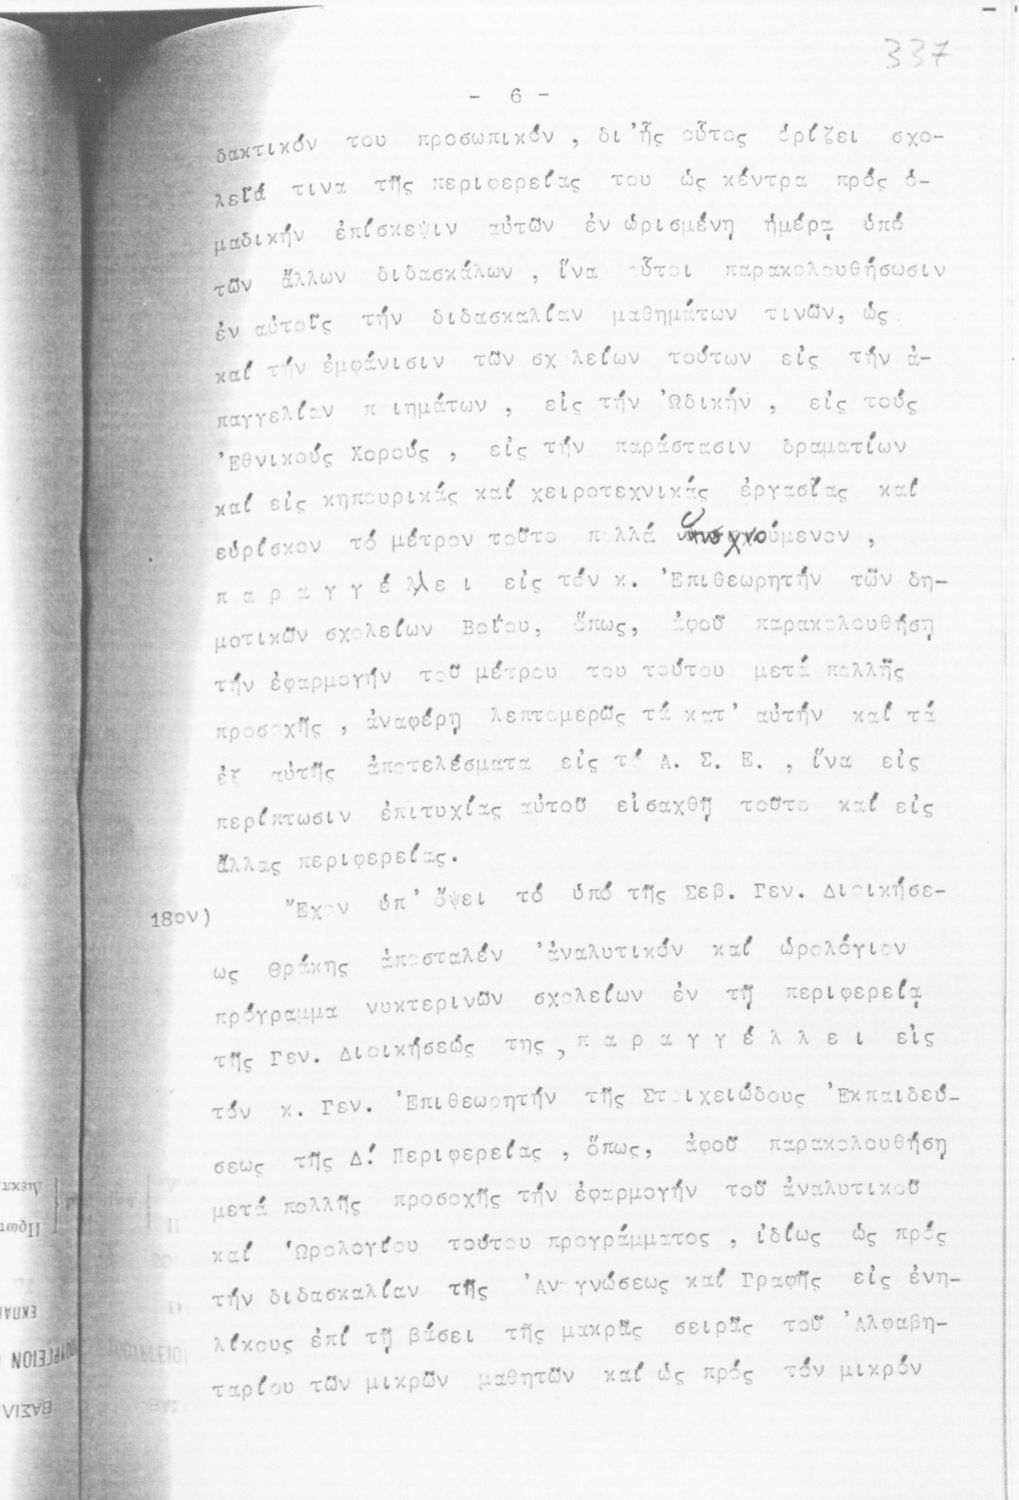 337
- 6 -
δακτικόν του προσωπικόν , δι'ἧς οὗτος ὁρίζει σχο-
λεῖά τινα τῆς περιφερείας του ὡς κέντρα πρός ὁ-
μαδικήν ἐπίσκεψιν αὐτῶν ἐν ὡρισμένῃ ἡμέρᾳ ὑπό
τῶν ἄλλων διδασκάλων , ἵνα οὗτοι παρακολουθήσωσιν
ἐν αὐτοῖς τήν διδασκαλίαν μαθημάτων τινῶν, ὡς
καί τήν ἐμφάνισιν τῶν σχολείων τούτων εἰς τήν ἀ-
παγγελίαν ποιημάτων , εἰς τήν Ὠδικήν , εἰς τούς
Ἐθνικούς Χορούς , εἰς τήν παράστασιν δραματίων
καί εἰς κηπουρικάς καί χειροτεχνικάς ἐργασίας καί
εὑρίσκον τό μέτρον τοῦτο πολλά ὑπισχνούμενον ,
π α ρ α γ γ έ λ λ ε ι εἰς τόν κ. Ἐπιθεωρητήν τῶν δη-
μοτικῶν σχολείων Βοΐου, ὅπως, ἀφοῦ παρακολουθήσῃ
τήν ἐφαρμογήν τοῦ μέτρου του τούτου μετά πολλῆς
προσοχῆς , ἀναφέρῃ λεπτομερῶς τά κατ' αὐτήν καί τά
ἐξ αὐτῆς ἀποτελέσματα εἰς τό Α. Σ. Ε. , ἵνα εἰς
περίπτωσιν ἐπιτυχίας αὐτοῦ εἰσαχθῇ τοῦτο καί εἰς
ἄλλας περιφερείας.
18ον) Ἔχον ὑπ' ὄψει τό ὑπό τῆς Σεβ. Γεν. Διοικήσε-
ως Θράκης ἀποσταλέν ἀναλυτικόν καί ὡρολόγιον
πρόγραμμα νυκτερινῶν σχολείων ἐν τῇ περιφερείᾳ
τῆς Γεν. Διοικήσεώς της , π α ρ α γ γ έ λ λ ε ι εἰς
τόν κ. Γεν. Ἐπιθεωρητήν τῆς Στοιχειώδους Ἐκπαιδεύ-
σεως τῆς Δ! Περιφερείας , ὅπως, ἀφοῦ παρακολουθήσῃ
μετά πολλῆς προσοχῆς τήν ἐφαρμογήν τοῦ ἀναλυτικοῦ
καί Ὡρολογίου τούτου προγράμματος , ἰδίως ὡς πρός
τήν διδασκαλίαν τῆς Ἀναγνώσεως καί Γραφῆς εἰς ἐνη-
λίκους ἐπί τῇ βάσει τῆς μακρᾶς σειρᾶς τοῦ Ἀλφαβη-
ταρίου τῶν μικρῶν μαθητῶν καί ὡς πρός τόν μικρόν